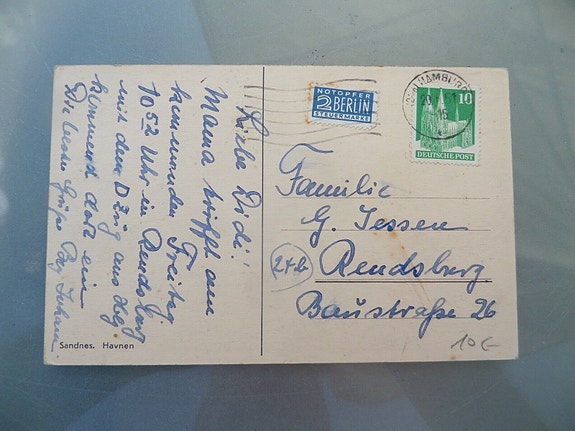 Liebe Didi!
Mama trifft am
kommenden Freitag
10 52 Uhr in Rendsburg
mit dem D Zug aus Hbg.
kommend dort ein
Die besten Grüße
Sandnes. Havnen
NOTOPFER
2 BERLIN
STEUERMARKE
HAMBURG
10
DEUTSCHE POST
Familie
G. Jessen
24b
Rendsberg.
Baustraße 26
10€